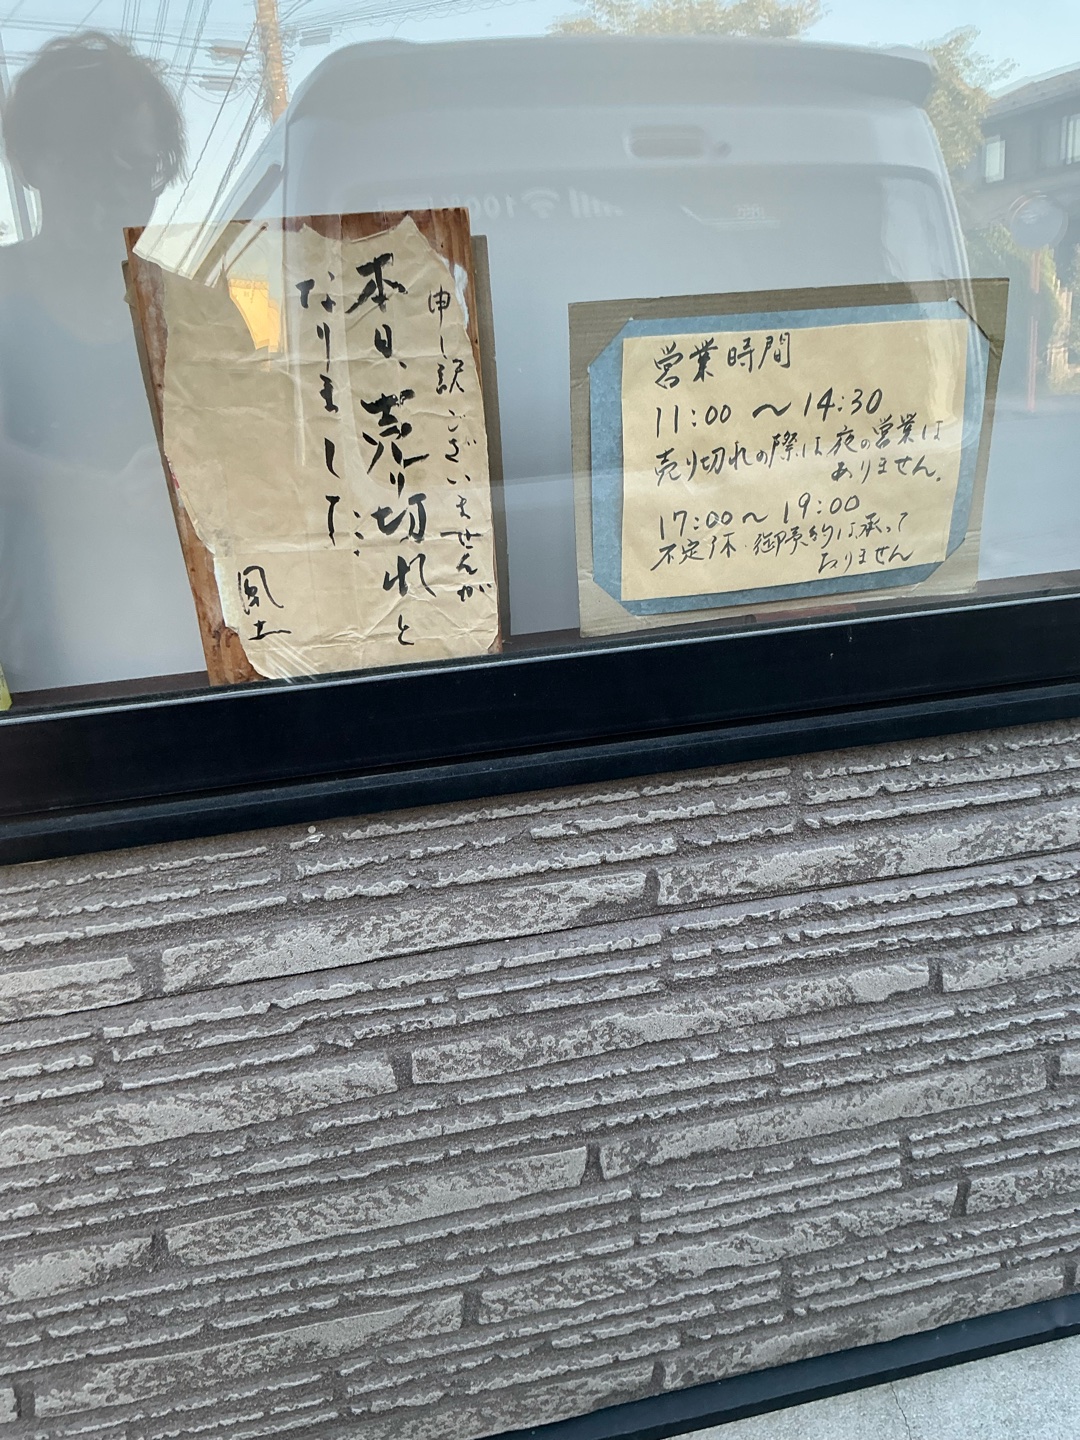 申し訳ございませんが
本日、売り切れと
なりました
風土
営業時間
11:00 〜 14:30
売り切れの際は夜の営業は
ありません。
17:00〜19:00
不定休 御予約は承って
おりません